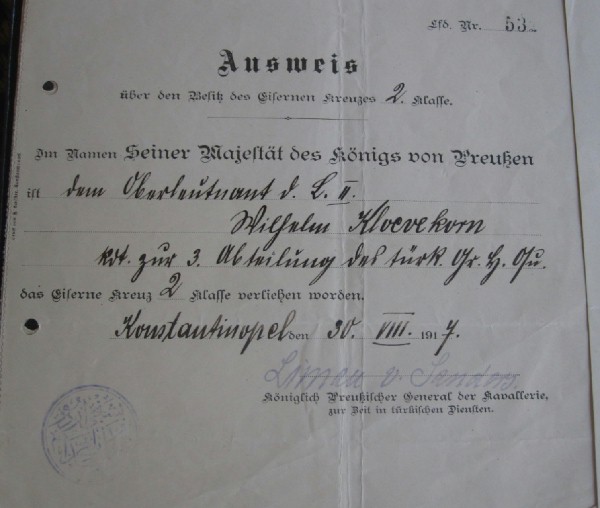 Lfd. Nr. 53.
Ausweis
über den Besitz des Eisernen Kreuzes 2. Klasse.
Im Namen Seiner Majestät des Königs von Preußen
ist dem Oberleutnant d. L. II.
Wilhelm Kloevekorn
kdt. zur 3. Abteilung des türk. Gr. H. Qu.
das Eiserne Kreuz 2 Klasse verliehen worden.
Konstantinopel den 30. VIII. 1917.
Liman v Sanders.
Königlich Preußischer General der Kavallerie,
zur Zeit in türkischen Diensten.